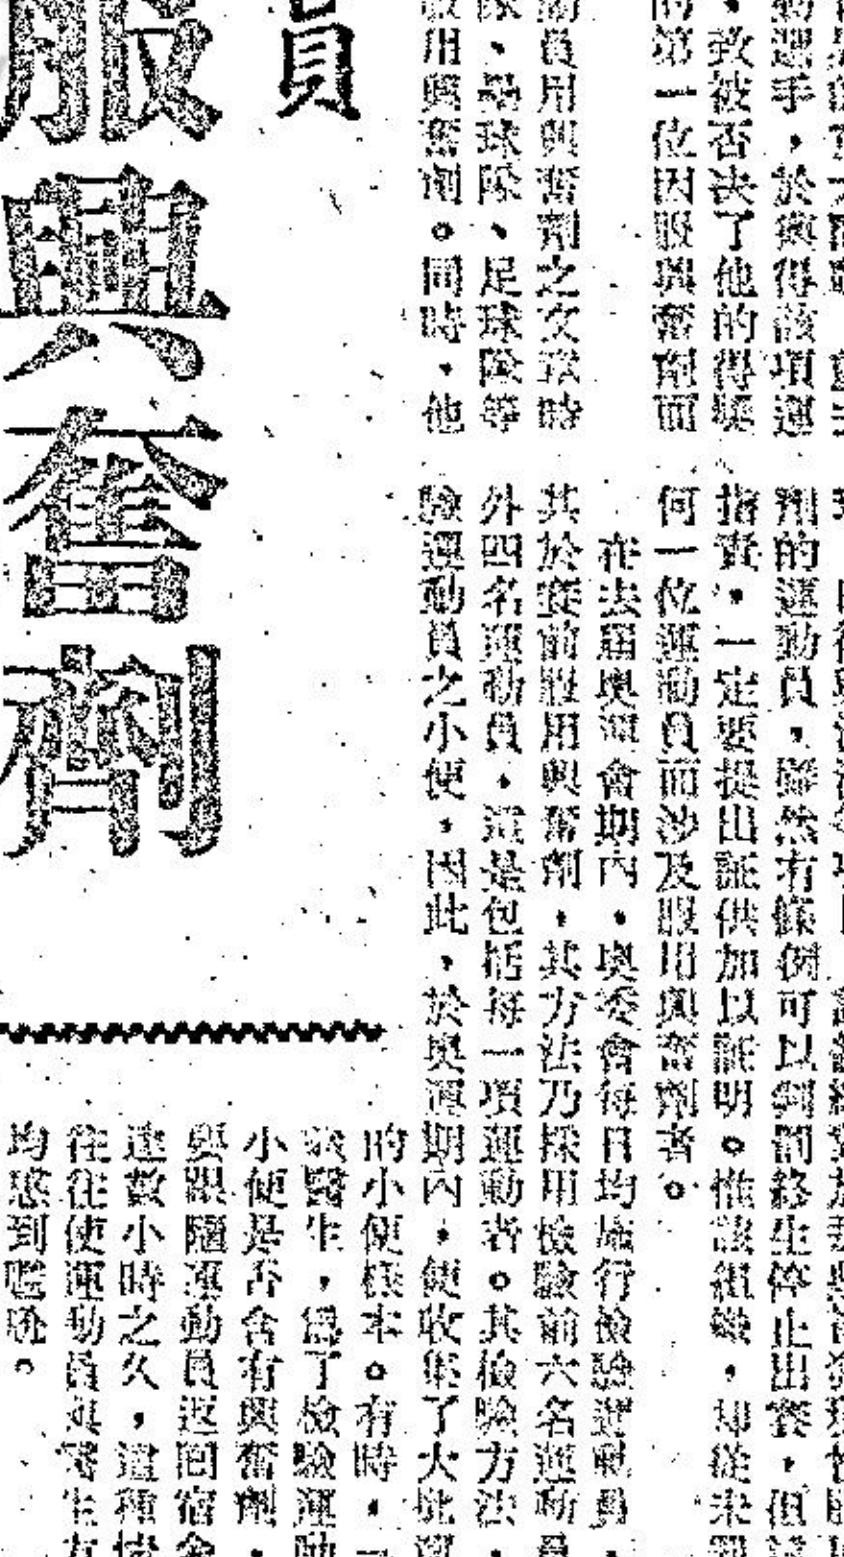 動選手，於獲得該項運
，致被否決了他的得獎
的第一位因服興奮劑而
動員用興奮劑之文章時
隊、壘球隊、足球隊等
用興奮劑。同時，他
員
服興奮劑
劑的運動員，雖然有條例可以判罰終生停止出賽，但
指責，一定要提出証供加以証明。惟該組織，却從未
何一位運動員而涉及服用興奮劑者。
在去屆奥運會期內，奥委會每日均施行檢驗運動員，
其於賽前服用興奮劑，其方法乃採用檢驗前六名運動員
外四名運動員，這是包括每一項運動者。其檢驗方法，
驗運動員之小便，因此，於奥運期內，便收集了大批運
的小便樣本。有時，一
醫生，爲了檢驗運動
小便是否含有興奮劑，
要跟隨運動員返回宿舍
達數小時之久，這種情
往往使運動員與醫生方
均感到尷尬。